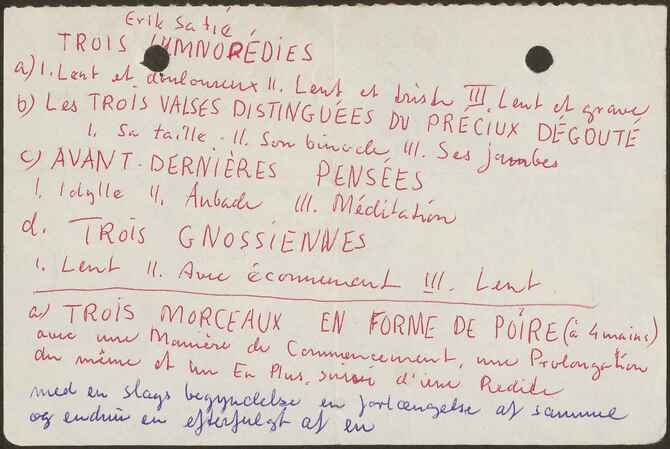 Erik Satie
TROIS GYMNOPÉDIES
a) I. Lent et douloureux II. Lent et triste III. Lent et grave
b) LES TROIS VALSES DISTINGUÉES DU PRÉCIUX DÉGOUTÉ
I. Sa taille. II. Son binocle III. Ses jambes
c) AVANT-DERNIÈRES PENSÉES
I. Idylle II. Aubade III. Méditation
d. TROIS GNOSSIENNES
I. Lent II. Avec étonnement III. Lent
a) TROIS MORCEAUX EN FORME DE POIRE (à 4 mains)
avec une Manière de Commencement, une Prolongation
du même et un En Plus, suivi d'une Redite
med en slags begyndelse en forlængelse af samme
og endnu en efterfulgt af en